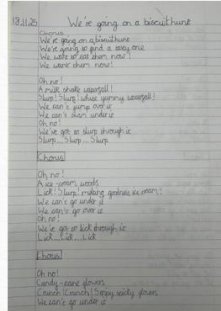 We're going on a biscuit hunt
Chorus
We're going on a biscuit hunt
We're going to find a one
We want to eat them now!
We want them now!
Oh no!
A milk waterfall!
Slurp! Slurp! yummy waterfall!
We can't over it
We can't under it
Oh no!
We've got to slurp through it
Slurp... Slurp... Slurp
Chorus
Oh no!
A ice-cream woods
Lick! Slurp! melting ice cream!
We can't go under it
We can't go over it
Oh no!
We've got to lick through it
Lick... Lick... Lick
Chorus
Oh no!
Candy-cane
Crunch! Crunch!
We can't go under it